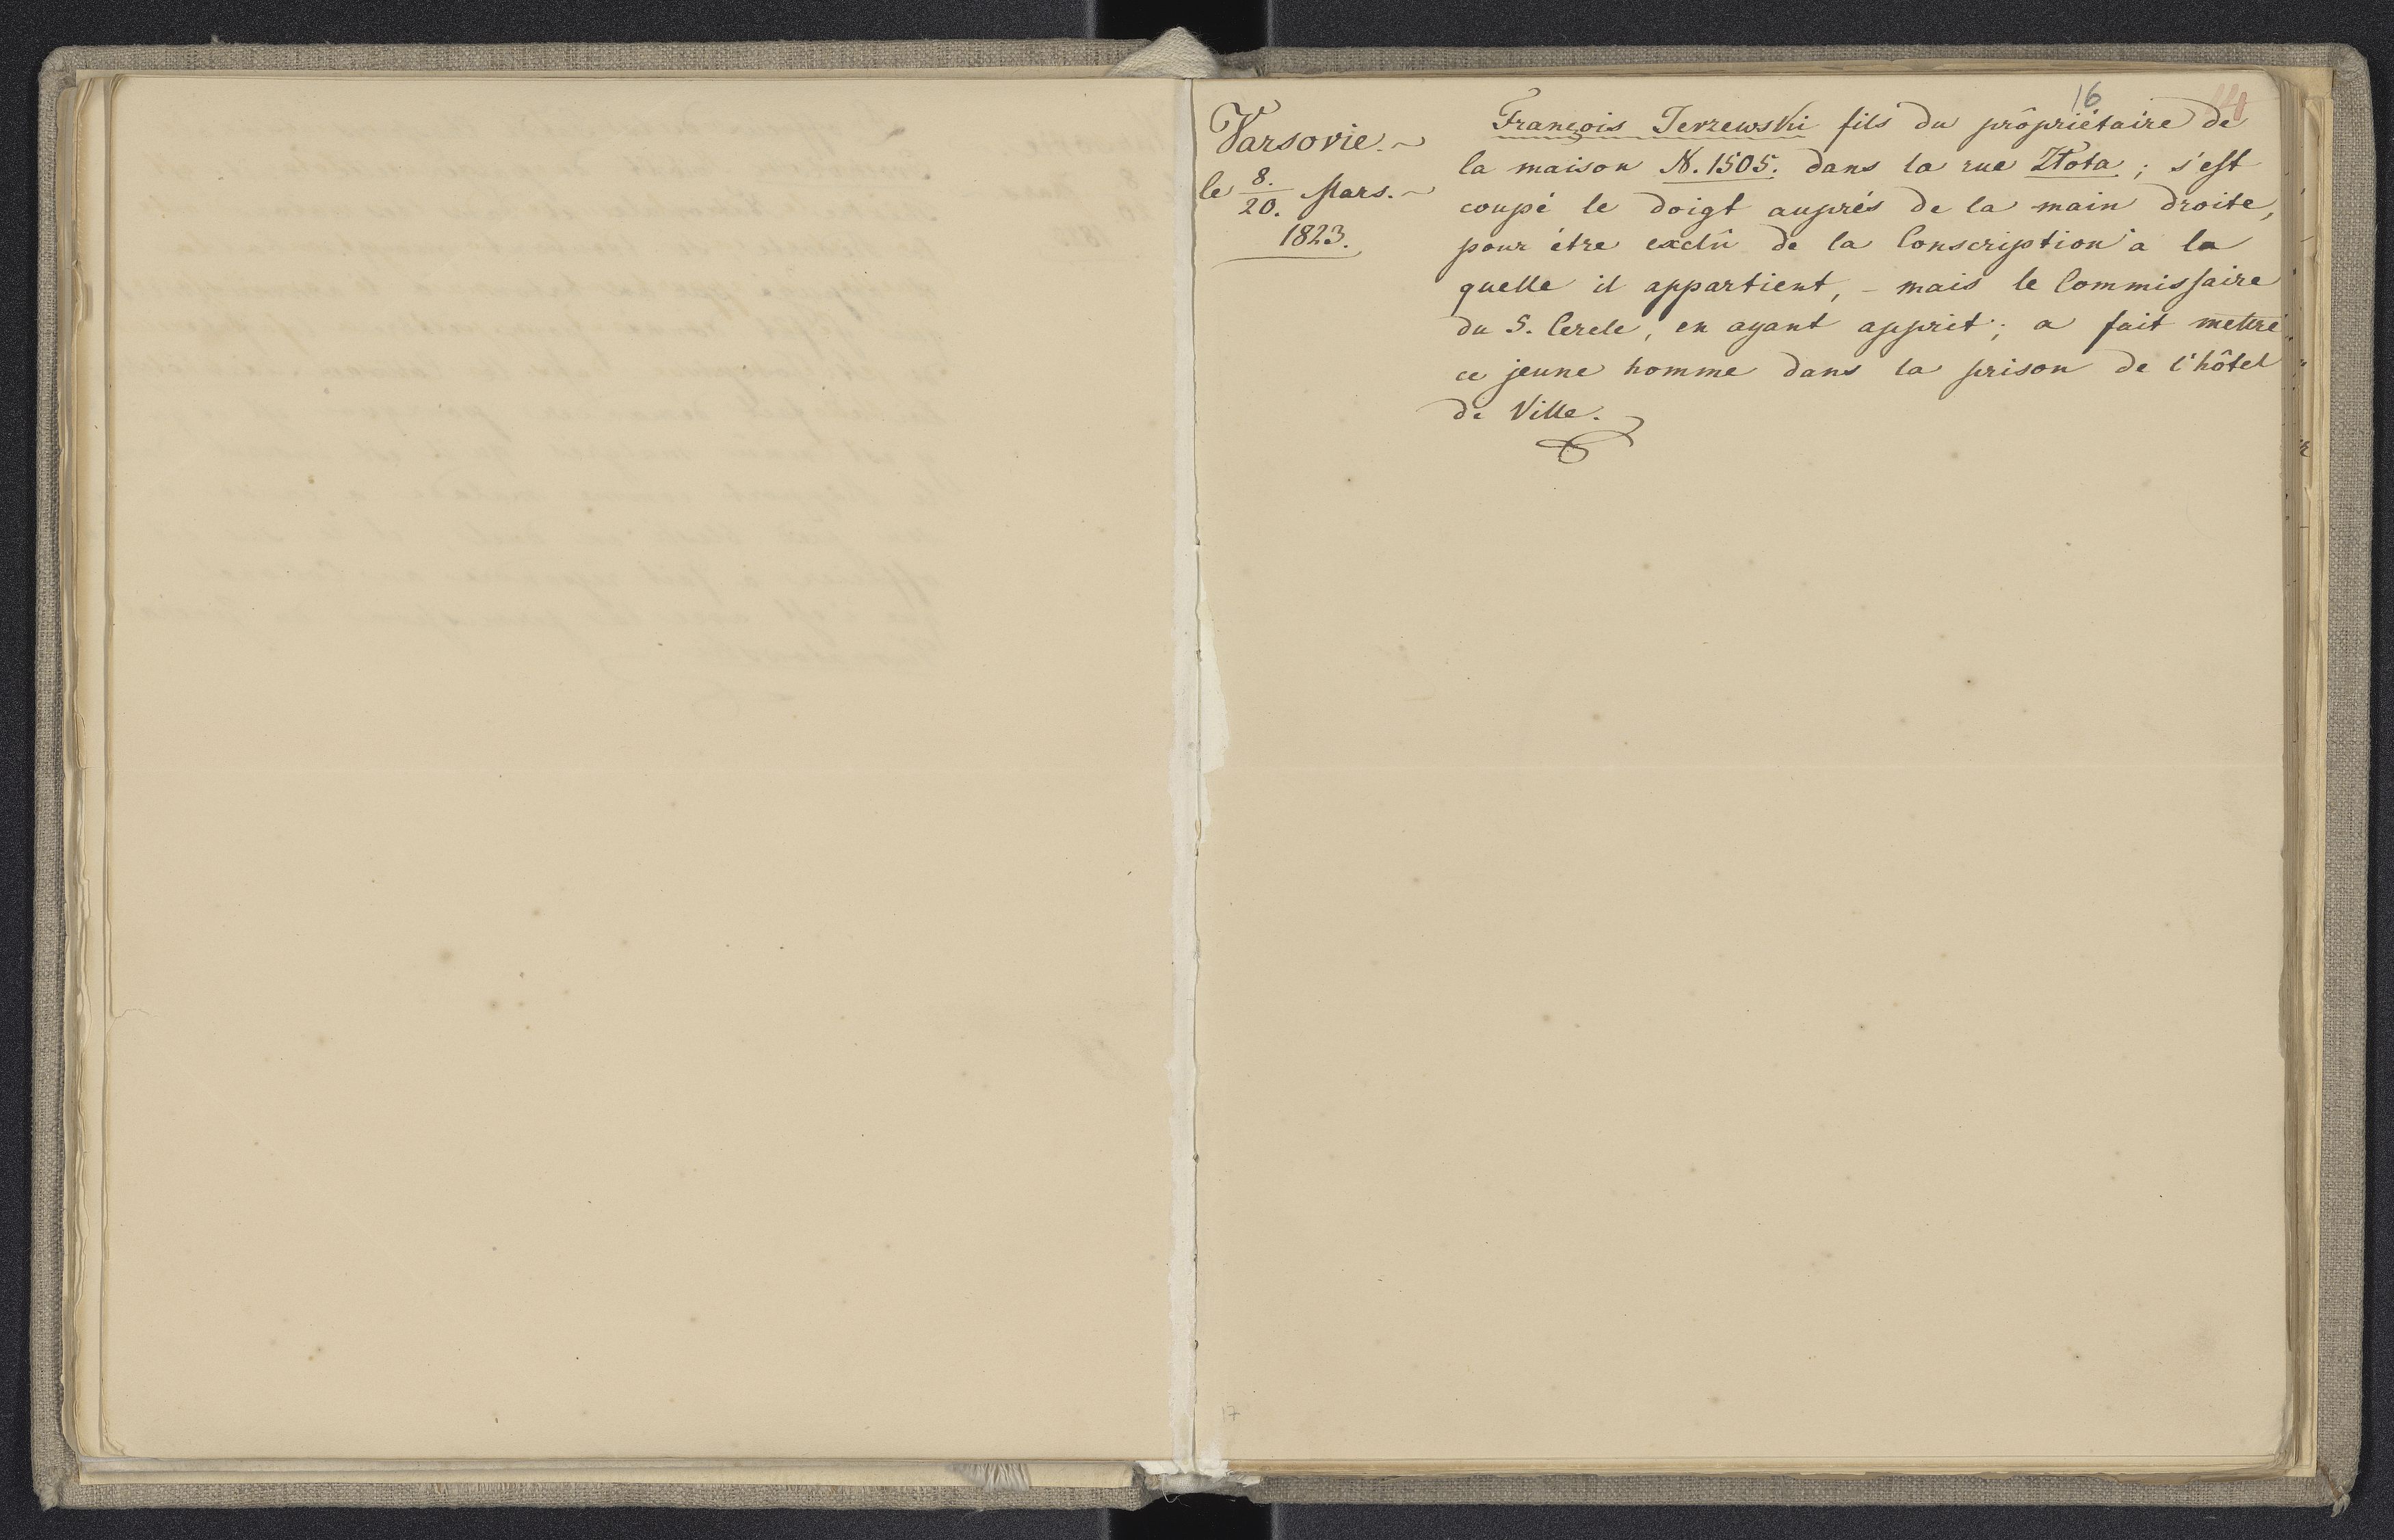 16
Varsovie.~
le 8./20. Mars.~
1823.
François Jerzewski fils du prôpriétaire de
la maison N. 1505. dans la rue Złota ; s'est
coupé le doigt auprés de la main droite,
pour étre exclû de la Conscription à la
quelle il appartient, – mais le Commissaire
du 5. Cercle, en ayant apprit ; a fait mettre
ce jeune homme dans la prison de l'hôtel
de Ville.
17